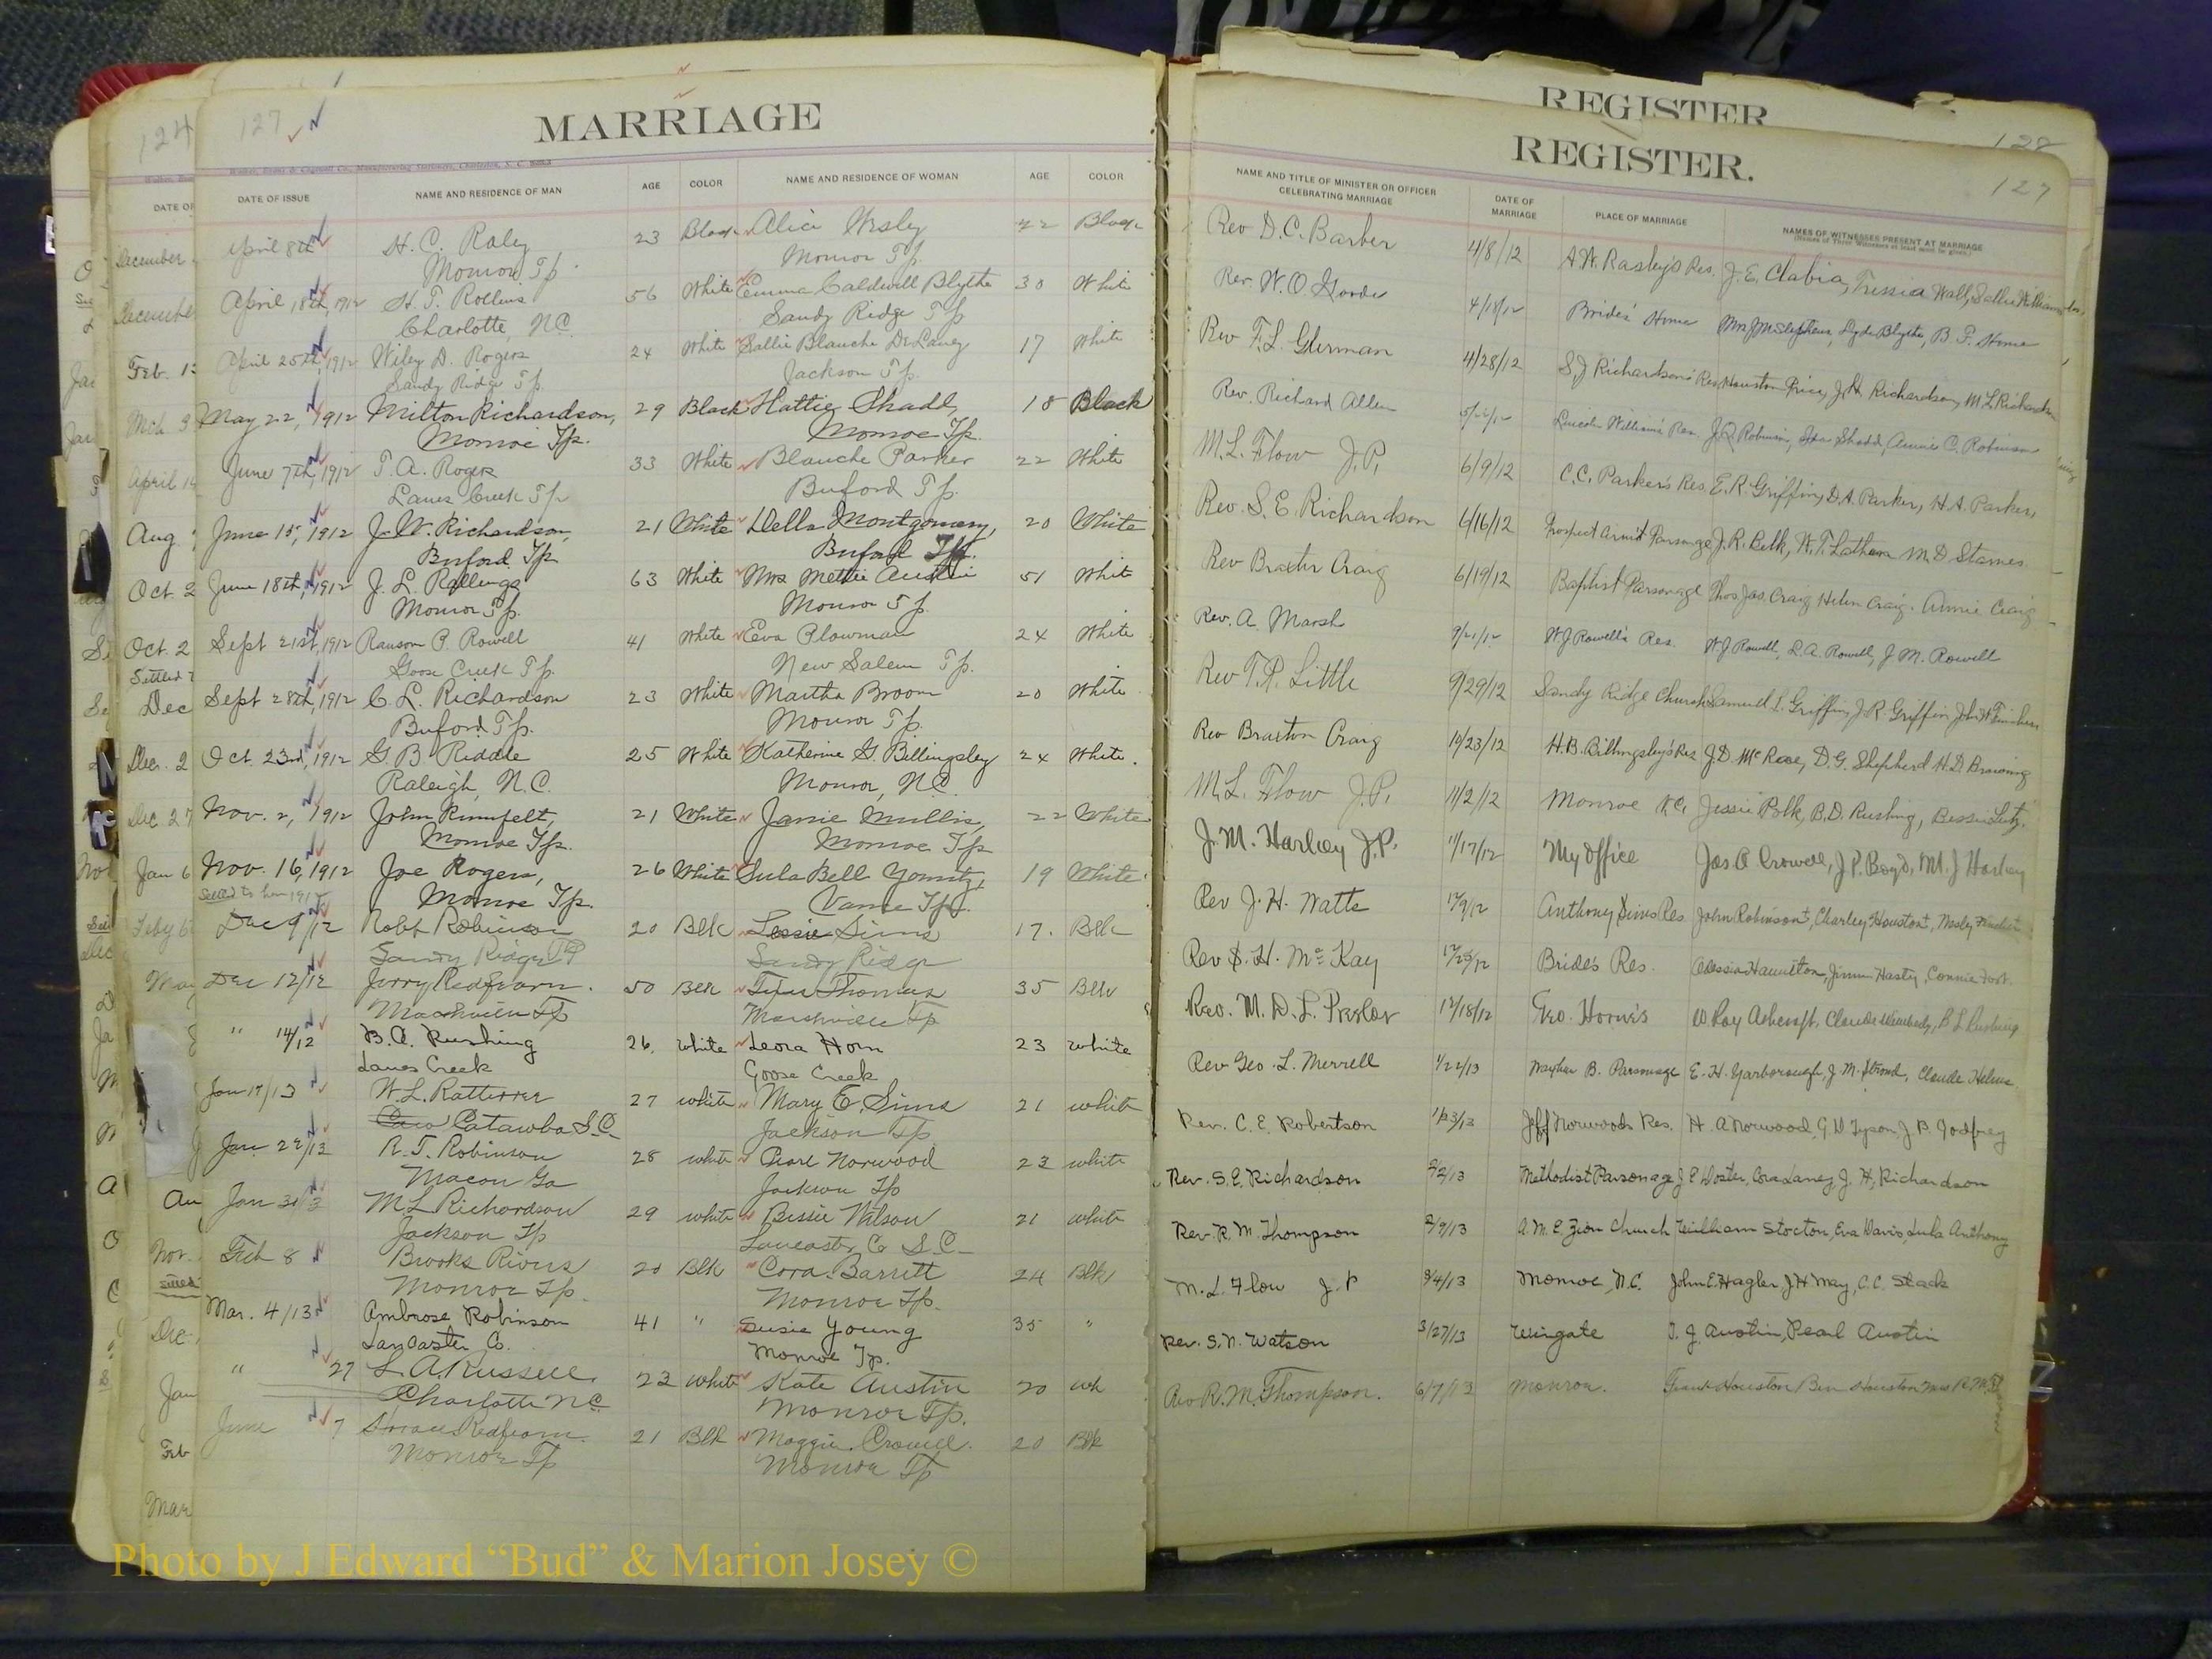 MARRIAGE
127
124
Walker, Evans & Cogswell Co., Manufacturing Stationers, Charleston, S. C.
DATE OF ISSUE NAME AND RESIDENCE OF MAN AGE COLOR NAME AND RESIDENCE OF WOMAN AGE COLOR
April 8th H. C. Raley 23 Black Alice Wesly 22 Black
Monroe Tp. Monroe Tp.
April 18th, 1912 H. T. Rollins 56 White Emma Caldwell Blythe 30 White
Charlotte, N.C. Sandy Ridge Tp
April 25th, 1912 Wiley D. Rogers 24 White Sallie Blanche DeLaney 17 White
Sandy Ridge Tp. Jackson Tp.
May 22, 1912 Milton Richardson, 29 Black Hattie Shadd, 18 Black
Monroe Tp. Monroe Tp.
June 7th, 1912 T. A. Rogers 33 White Blanche Parker 22 White
Lanes Creek Tp Buford Tp.
June 15, 1912 J. W. Richardson, 21 White Della Montgomery, 20 White
Buford Tp. Buford Tp.
June 18th, 1912 J. L. Rollings 63 White Mrs Mettie Austin 51 White
Monroe Tp. Monroe Tp.
Sept 21st, 1912 Ranson P. Rowell 41 White Eva Plowman 24 White
Goose Creek Tp. New Salem Tp.
Sept 28th, 1912 C. L. Richardson 23 White Martha Broom 20 White
Buford Tp. Monroe Tp.
Oct. 23rd, 1912 G. B. Riddle 25 White Katherine G. Billingsley 24 White.
Raleigh, N.C. Monroe, N.C.
Nov. 2, 1912 John Rumfelt, 21 White Janie Mullis, 22 White
Monroe Tp. Monroe Tp
Nov. 16, 1912 Joe Rogers, 26 White Lula Bell Yountz, 19 White
Monroe Tp. Vance Tp.
Dec 9/12 Robt Robinson 20 Blk Lessie Sims 17. Blk
Sandy Ridge Tp Sandy Ridge
Dec 12/12 Jerry Redfearn. 50 Blk Thomas 35 Blk
Marshville Tp Marshville Tp
" 14/12 B. A. Rushing 26. white Leora Horn 23 white
Lanes Creek Goose Creek
Jan 17/13 W. L. Ratterree 27 white Mary E. Sims 21 white
Catawba S.C. Jackson Tp
Jan 22/13 R. T. Robinson 28 white Pearl Norwood 23 white
Macon Ga Jackson Tp
Jan 30/13 M L Richardson 29 white Bessie Wilson 21 white
Jackson Tp Lancaster Co S.C.
Feb 8 Brooks Rivers 20 Blk Cora Barrett 24 Blk
Monroe Tp. Monroe Tp.
Mar. 4/13 Ambrose Robinson 41 " Susie Young 35 "
Lancaster Co. Monroe Tp.
" 27 L. A. Russell 23 white Kate Austin 20 wh
Charlotte N.C. Monroe Tp.
June 7 Redfearn. 21 Blk Maggie Crowell. 20 Blk
Monroe Tp Monroe Tp
REGISTER
128
REGISTER.
127
NAME AND TITLE OF MINISTER OR OFFICER CELEBRATING MARRIAGE DATE OF MARRIAGE PLACE OF MARRIAGE NAMES OF WITNESSES PRESENT AT MARRIAGE
(Names of Three Witnesses at least must be given.)
Rev D. C. Barber 4/8/12 Res. J. E. Clabia, Tressia Wall, Sallie
Rev. W. O. Goode 4/18/12 Bride's Home Mrs J M Stephens, Clyde Blythe, B. F. Howie
Rev F. L. Glerman 4/28/12 S J Richardson's Res Houston Price, J. H. Richardson, M L Richardson
Rev. Richard Allen 5/22/12 Lincoln William's Res. J. Q. Robinson, Shadd, Annie C. Robinson
M. L. Flow J. P. 6/9/12 C. C. Parker's Res. E. R. Griffin, D. A. Parker, H. A. Parker,
Rev. S. E. Richardson 6/16/12 Prospect Parsonage J. R. Belk, W. T. Lathan M. D. Starnes
Rev Braxton Craig 6/19/12 Baptist Parsonage Thos. Jas. Craig Helen Craig. Annie Craig
Rev. A. Marsh 9/21/12 W J Rowell's Res. W J Rowell, L. A. Rowell, J. M. Rowell
Rev T. P. Little 9/29/12 Sandy Ridge Church Samuel L. Griffin, J. R. Griffin,
Rev Braxton Craig 10/23/12 H. B. Billingsley's Res J. D. McRae, D. G. Shepherd H. D. Browning
M. L. Flow J. P. 11/2/12 Monroe N.C. Jessie Polk, B. D. Rushing, Bessie Lutz.
J. M. Harkey J. P. 11/17/12 My Office Jas A Crowell, J. P. Boyd, M. J Harkey
Rev J. H. Watts 12/9/12 Anthony Sims Res John Robinson, Charley Houston,
Rev S. H. McKay 12/25/12 Bride's Res. Odessia Hamilton, Jimm Hasty, Connie
Rev. M. D. L. Preslar 12/18/12 Geo. Horne's W. Ray Ashcraft, Claude B L Rushing
Rev Geo. L. Merrell 1/22/13 Waxhaw B. Parsonage E. H. Yarborough, J. M. Stroud, Claude Helms.
Rev. C. E. Robertson 1/23/13 Jeff Norwoods Res. H. A Norwood, G. D. Tyson, J. B. Godfrey
Rev. S. E. Richardson 2/2/13 Methodist Parsonage J E Doster, Cora Laney, J. H. Richardson
Rev. R. M. Thompson 2/9/13 A. M. E. Zion Church William Stocton, Eva Davis, Lula Anthony
M. L. Flow J. P 3/4/13 Monroe, N.C. John E. Hagler, J H May, C. C. Stack
Rev. S. N. Watson 3/27/13 Wingate T. J. Austin, Pearl Austin
Rev R. M. Thompson. 6/7/13 Monroe. Frank Houston Ben Houston Mrs R M
Photo by J Edward “Bud” & Marion Josey ©